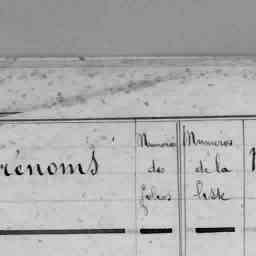 rénoms
Numéros
des
folios
Numéros
de la
liste